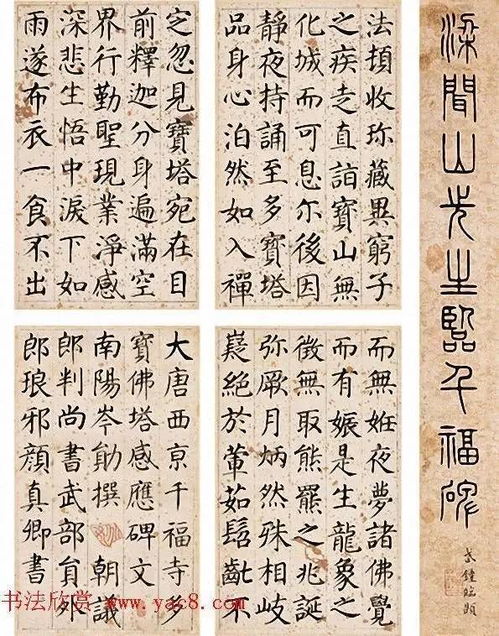 梁聞山先生臨千福碑
法頓收珎藏異窮子
之疾走直詣寶山無
化城而可息尔後因
靜夜持誦至多寶塔
品身心泊然如入禪
定忽見寶塔宛在目
前釋迦分身遍滿空
界行勤聖現業淨感
深悲生悟中淚下如
雨遂布衣一食不出
而無姙夜夢諸佛覺
而有娠是生龍象之
徵無取熊羆之兆誕
弥厥月炳然殊相岐
嶷絕於葷茹髫齔不
大唐西京千福寺多
寶佛塔感應碑文
南陽岑勛撰 朝議
郎判尚書武部員外
郎琅邪顏真卿書
书法欣赏 www.yac8.com